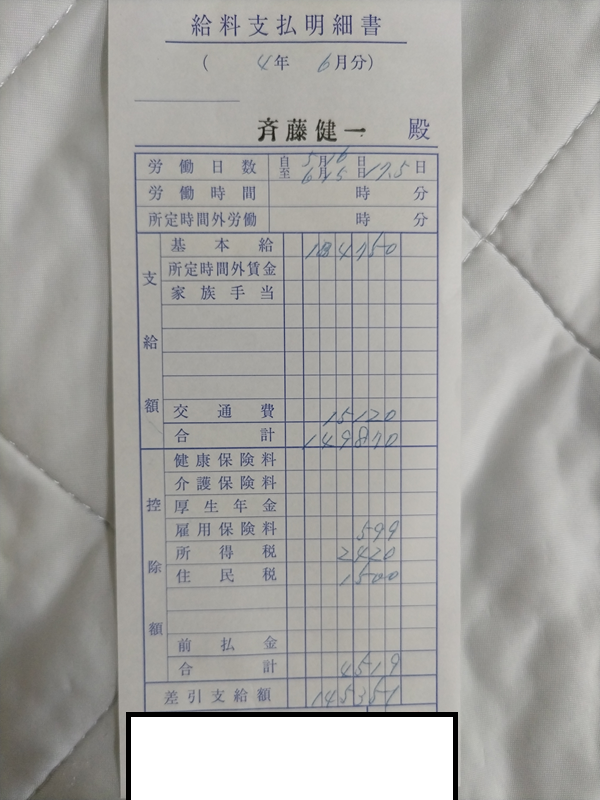 給料支払明細書
( 4年 6月分)
斉藤健一 殿
労働日数 自 5月16日 至 6月15日 17.5日
労働時間 時 分
所定時間外労働 時 分
支給額
基本給 134750
所定時間外賃金
家族手当
交通費 15120
合計 149870
控除額
健康保険料
介護保険料
厚生年金
雇用保険料 599
所得税 2420
住民税 1500
前払金
合計 4519
差引支給額 145351